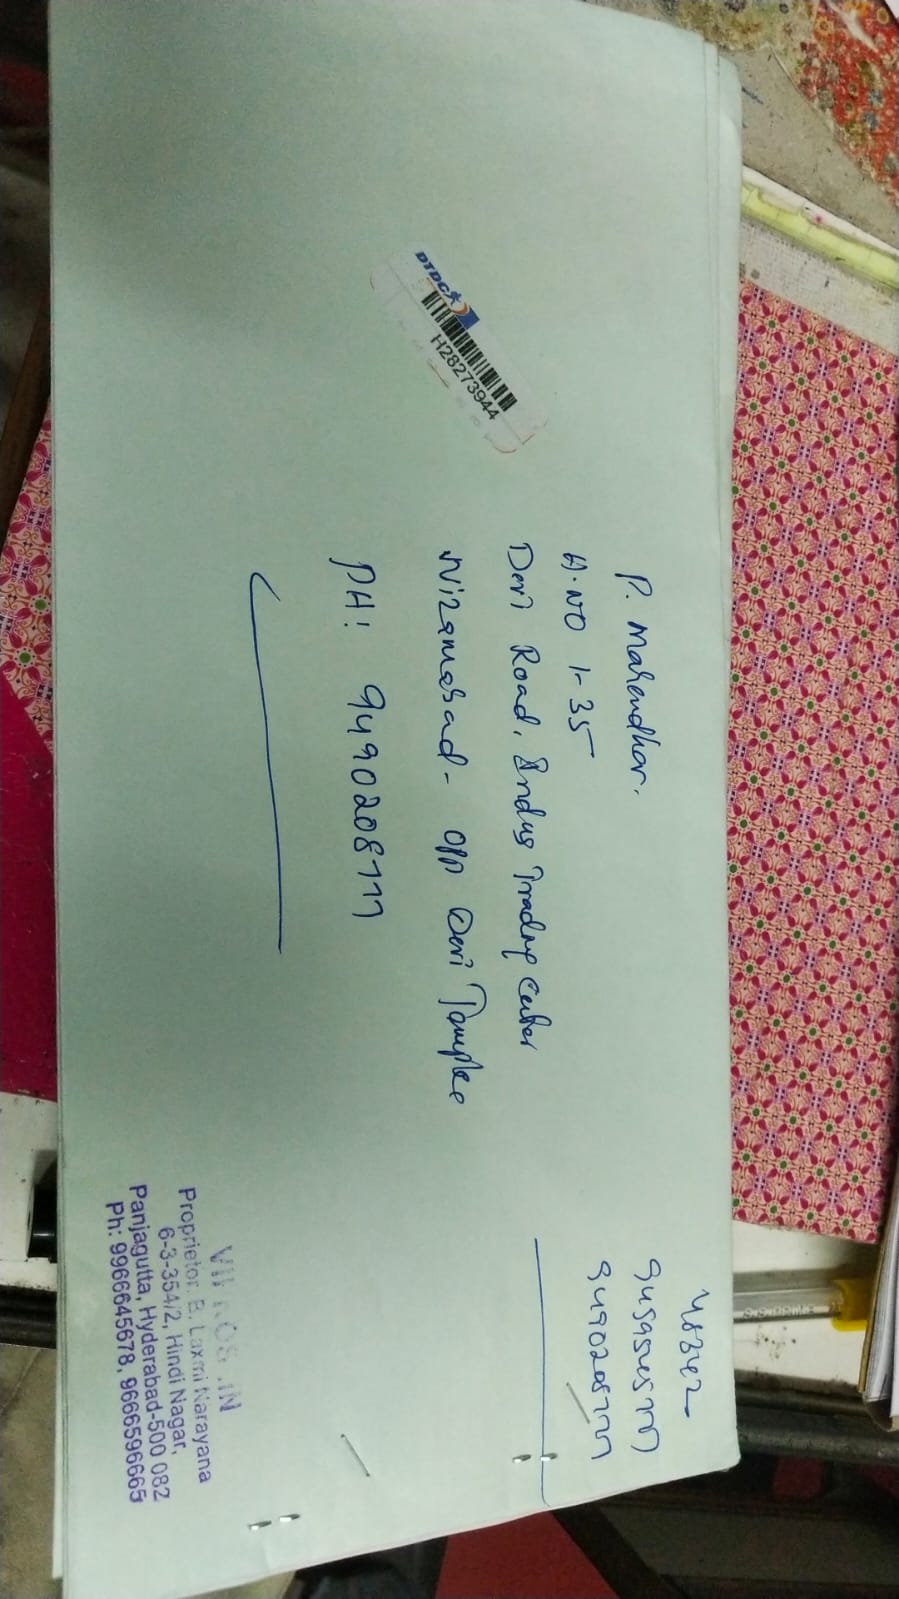 DTDC
H28273944
P. Mahendhar.
H.NO 1-35
Devi Road, Indus Trading Center
Nizamabad- opp Devi Temple
PH: 9490208777
48342-
9459545777
9490208777
Proprietor: B. Laxmi Narayana
6-3-354/2, Hindi Nagar,
Panjagutta, Hyderabad-500 082
Ph: 9966645678, 9666596665